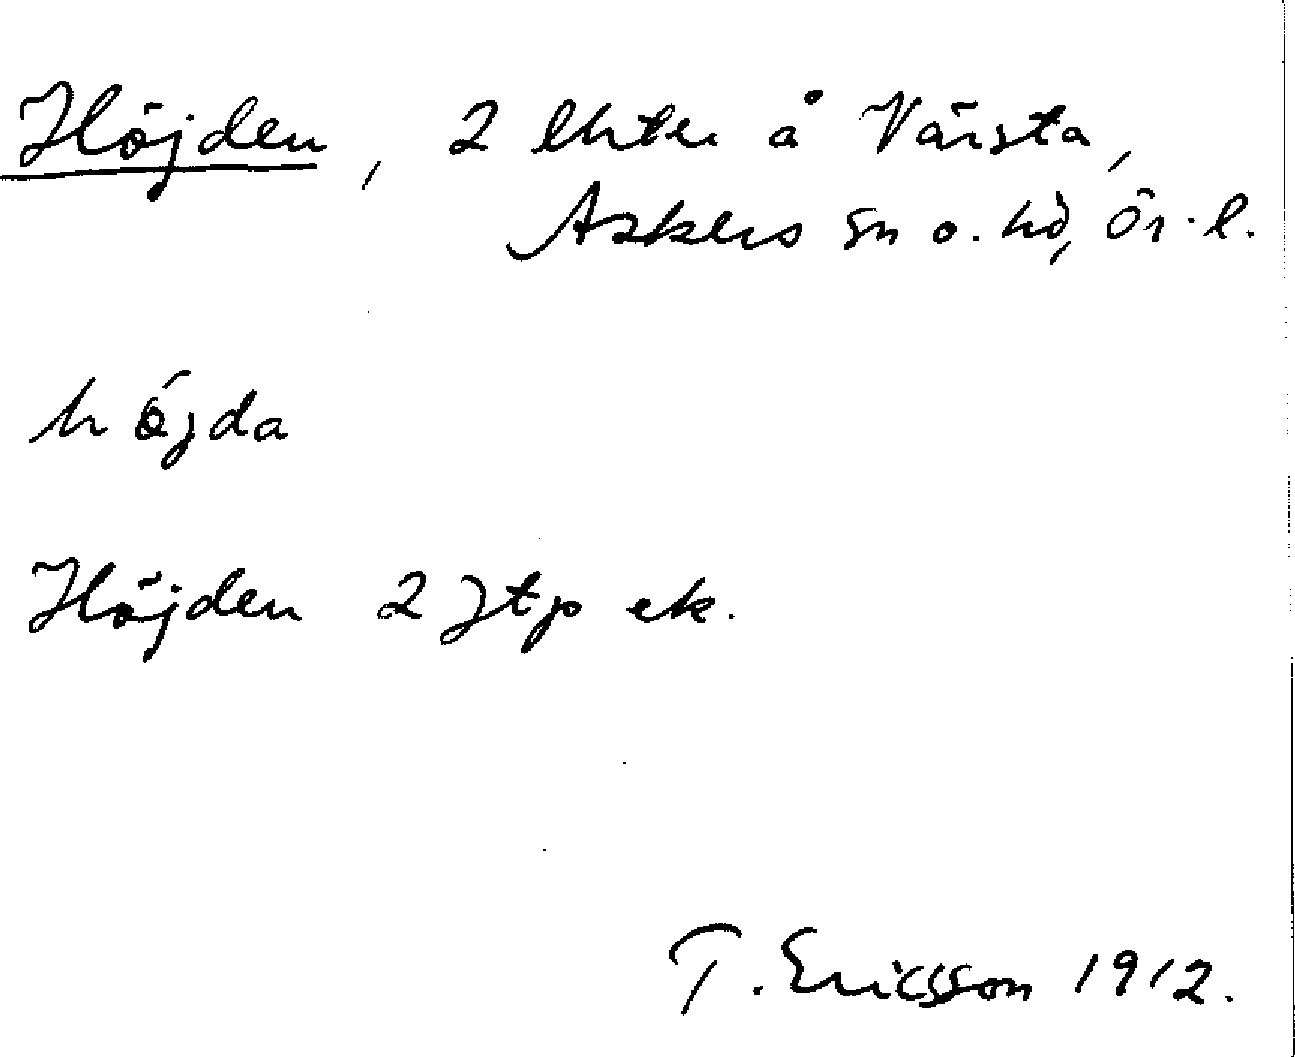 Höjden, 2 lhter å Värsta,
Askers sn o. hd, Ör. l.
höjda
Höjden 2 Jtp ek.
T. Ericsson 1912.